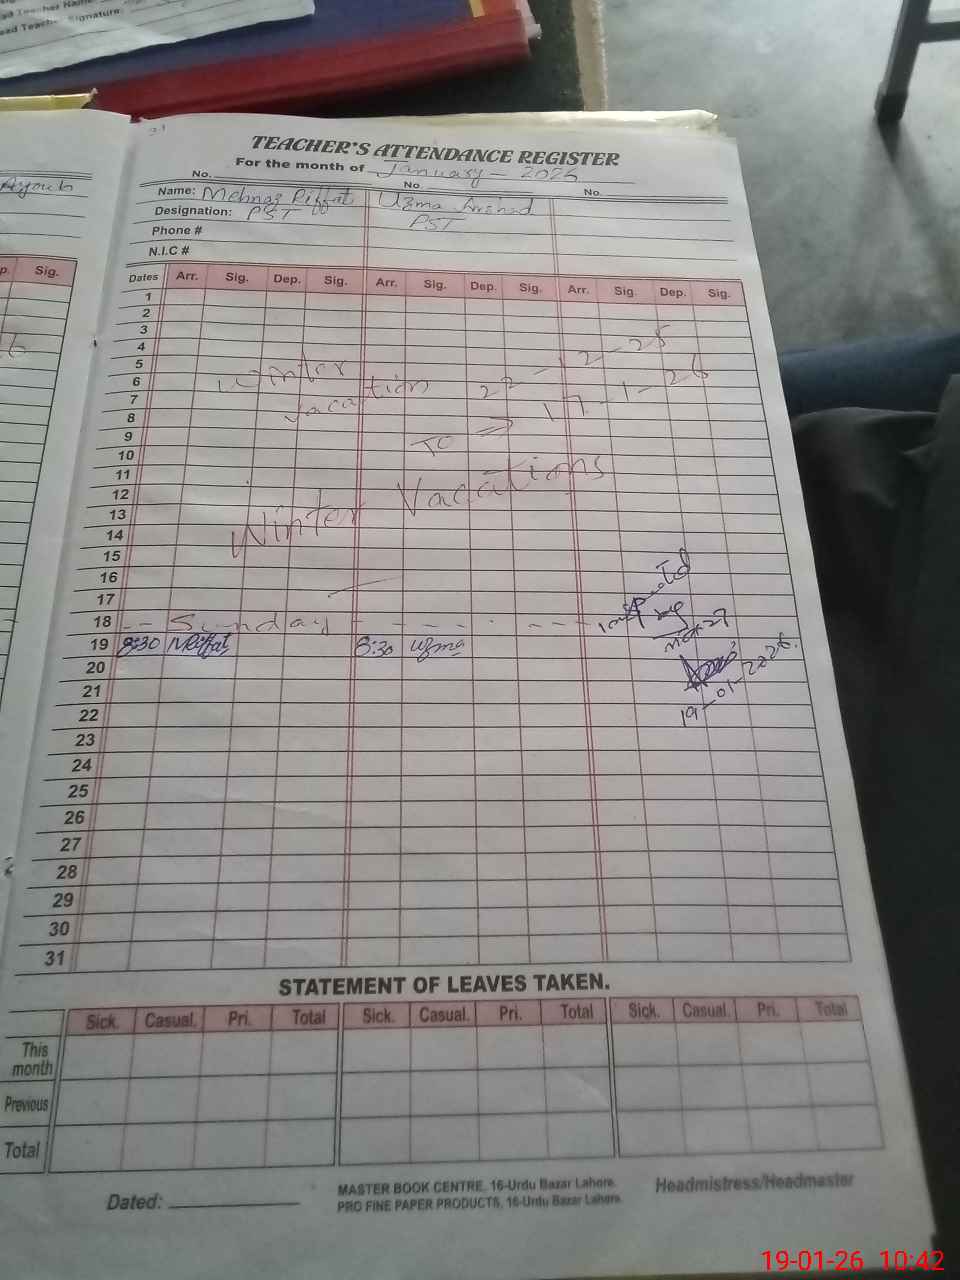 ead Teacher Name
ead Teacher Signature
Ayoub
p. Sig.
TEACHER'S ATTENDANCE REGISTER
For the month of January - 2026
No. No. No.
Name: Mehnaz Riffat Uzma Arshad
Designation: PST PST
Phone #
N.I.C #
Dates Arr. Sig. Dep. Sig. Arr. Sig. Dep. Sig. Arr. Sig. Dep. Sig.
1
2
3
4
5
6
7
8
9
10
11
12
13
14
15
16
17
18
19
20
21
22
23
24
25
26
27
28
29
30
31
Winter
vacation 22-12-25
To ⇒ 17-1-26
Winter Vacations
Sunday
8:30 MRiffat 8:30 uzma
19-01-2026.
STATEMENT OF LEAVES TAKEN.
Sick. Casual. Pri. Total Sick. Casual. Pri. Total Sick. Casual. Pri. Total
This month
Previous
Total
Dated:
MASTER BOOK CENTRE, 16-Urdu Bazar Lahore.
PRO FINE PAPER PRODUCTS, 16-Urdu Bazar Lahore.
Headmistress/Headmaster
19-01-26 10:42